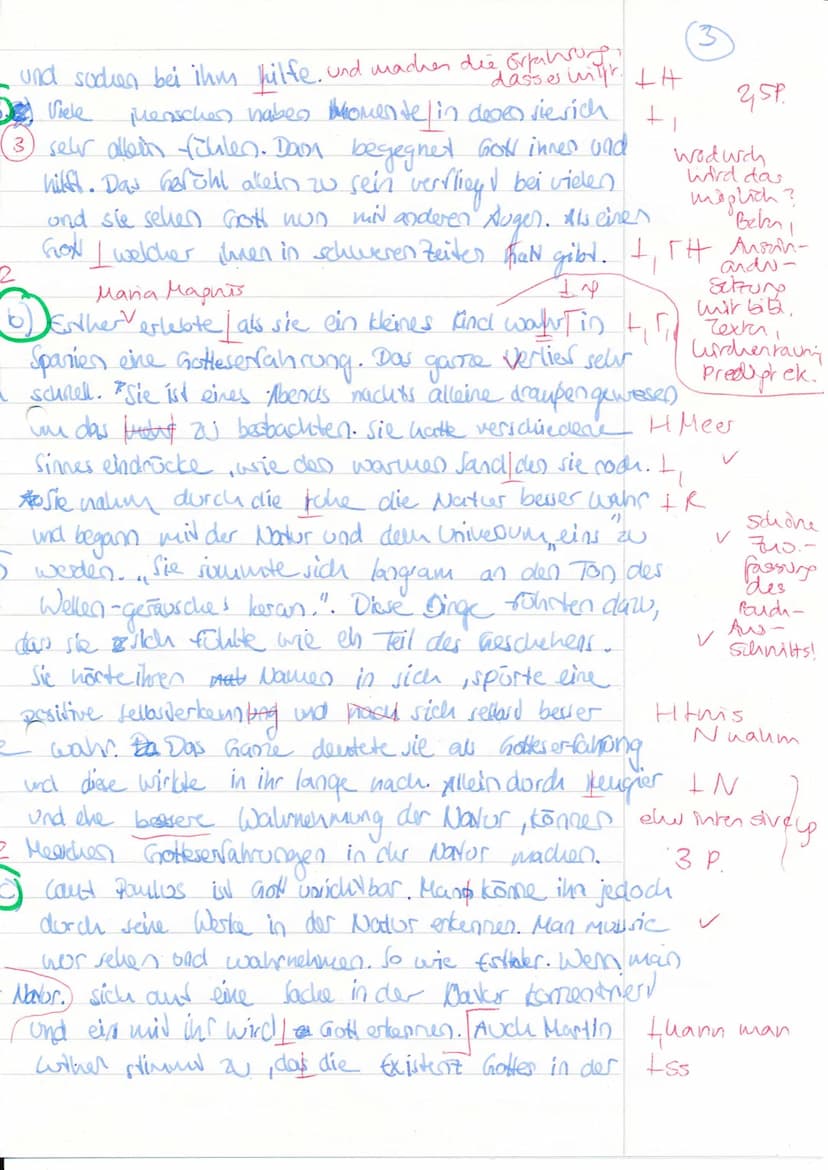 3
und suchen bei ihm hilfe. und machen die Erfahrung, dass es hilft. ⊥H
Viele Menschen haben Momente in denen sie sich ⊥,
3 sehr allein fühlen. Dann begegnet Gott ihnen und
hilft. Das Gefühl allein zu sein verfliegt bei vielen
und sie sehen Gott nun mit anderen Augen. Als einen
Gott welcher ihnen in schweren Zeiten halt gibt. ⊥, ΓH
2,5P.
wodurch
wird das
möglich?
Beten,
Ausein-
ander-
Setzung
mit bibl.
Texten,
Kirchenraum,
Predigt ek.
Maria Magnis
b) Esther erlebte als sie ein kleines Kind wahr in ⊥, Γ,
Spanien eine Gotteserfahrung. Das ganze Verlief sehr
schnell. Sie ist eines Abends nachts alleine draußen gewesen
um das zu beobachten. Sie hatte verschiedene H Meer
Sinneseindrücke, wie den warmen Sand den sie roch. ⊥, ✓
Sie nahm durch die ruhe die Natur besser wahr ⊥R
und begann mit der Natur und dem Universum „eins" zu ✓
werden. „Sie stimmte sich langsam an den Ton des
Wellen-geräusches heran.". Diese Dinge führten dazu,
das sie sich fühlte wie ein Teil des Geschehens. ✓
schöne
Zus.-
fassung
des
Buch-
Aus-
schnitts!
Sie hörte ihren Namen in sich, spürte eine
positive selbsterkenntung und sich selbst besser H tnis
wahr. Das Ganze deutete sie als Gotteserfahrung N nahm
und diese wirkte in ihr lange nach. Allein durch neugier ⊥N
und ehe bessere Wahrnehmung der Natur, können eher intensivere
Menschen Gotteserfahrungen in der Natur machen. 3 P.
c) Laut Paulus ist Gott unsichtbar. Man könne ihn jedoch
durch seine Werke in der Natur erkennen. Man muss sie ✓
nur sehen und wahrnehmen. So wie Esther. Wenn man
Natur.) sich auf eine Sache in der Natur konzentriert
und eins mit ihr wird Gott erkennen. Auch Martin ⊥, kann man
Luther stimmt zu, das die Existenz Gottes in der ⊥ss